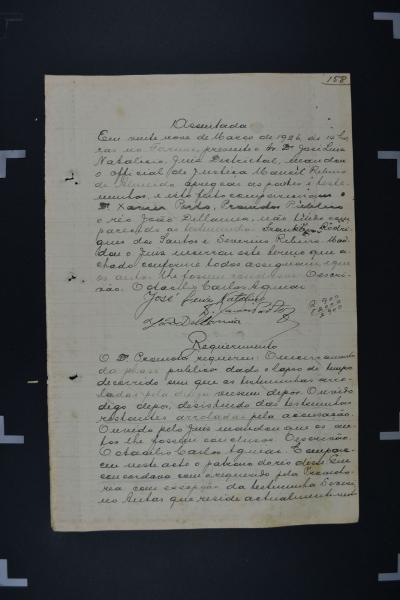 158
Assentada
Em vinte nove de Março de 1926, ás 14 ho
ras no Forum, presente o Sr. Dr. José Luiz
Natalicio, Juiz Districtal, mandou
o official de Justiça Manoel Ribeiro
de Almeida apregoar as partes e teste
munhas, e isto feito compareceram o
Dr. Xavier Porto, Promotor Publico
o réo João Dallarosa, não tendo com
parecido as testemunhas Franklin Rodri
gues dos Santos e Severino Ribeiro. Man
dou o Juiz encerrar este termo que a
chado conforme todos assignam e que
os autos lhe fossem conclusos. O escri
vão. Octacilio Carlos Aguiar
José Luiz Natalicio
Requerimento
O Dr. Promotor requereu: O encerramento
da publico dado o lapso de tempo
decorrido sem que as testemunhas arro
ladas pela viessem depor. Ouvido
digo depor, desistindo das testemunhas
restantes arroladas pela accusação.
Ouvido pelo Juiz mandou que os au
tos lhe fossem conclusos. O escrivão.
Octacilio Carlos Aguiar. Compare
ceu neste acto o patrono do réo disse que
concordava com o requerido pela Promoto
ria com excepção da testemunha Severi
no que reside actualmente